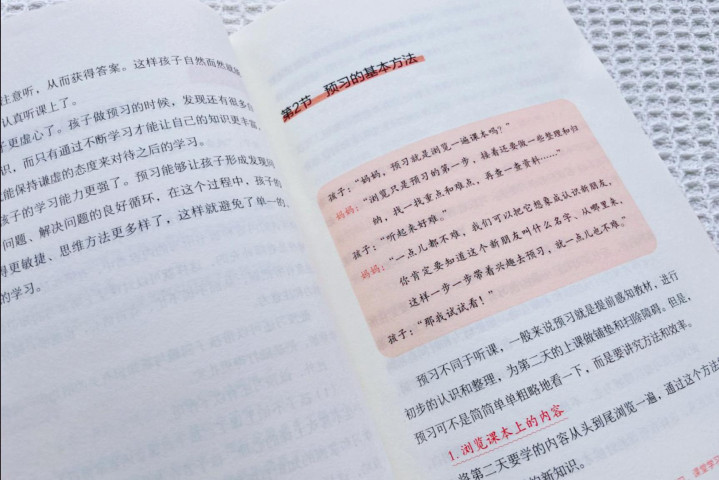 注意听，从而获得答案。这样孩子自然而然就
认真听课上了。
更虚心了。孩子做预习的时候，发现还有很多
识，而只有通过不断学习才能让自己的知识更丰富，
能保持谦虚的态度来对待之后的学习。
孩子的学习能力更强了。预习能够让孩子形成发现问
问题、解决问题的良好循环，在这个过程中，孩子的
得更敏捷、思维方法更多样了，这样就避免了单一的、
的学习。
第2节 预习的基本方法
孩子：“妈妈，预习就是浏览一遍课本吗？”
妈妈：“浏览只是预习的第一步，接着还要做一些整理和归
的，找一找重点和难点，再查一查资料……”
孩子：“听起来好难。”
妈妈：“一点儿都不难，我们可以把它想象成认识新朋友，
你肯定要知道这个新朋友叫什么名字、从哪里来，
这样一步一步带着兴趣去预习，就一点儿也不难。”
孩子：“那我试试看！”
预习不同于听课，一般来说预习就是提前感知教材，进行
初步的认识和整理，为第二天的上课做铺垫和扫除障碍。但是，
预习可不是简简单单粗略地看一下，而是要讲究方法和效率。
1.浏览课本上的内容
将第二天要学的内容从头到尾浏览一遍，通过这个方法
的新知识。
课堂学习